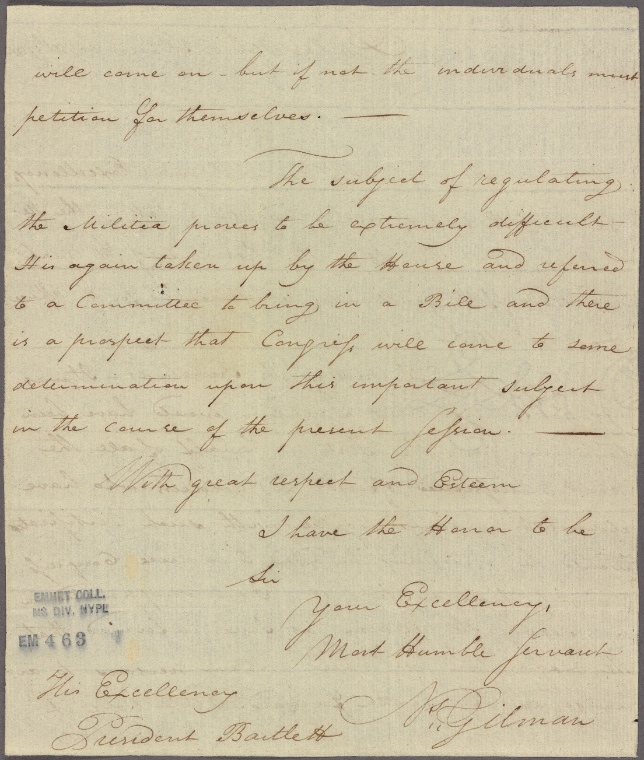 will come on - but if not the individuals must
petition for themselves. —
The subject of regulating
the Militia proves to be extremely difficult -
It is again taken up by the House and referred
to a Committee to bring in a Bill and there
is a prospect that Congress will come to some
determination upon this important subject
in the course of the present Session. —
With great respect and Esteem
I have the Honor to be
Sir
Your Excellency,
Most Humble Servant
Ns. Gilman
His Excellency
President Bartlett
EMMET COLL.
MS DIV. NYPL
EM 463